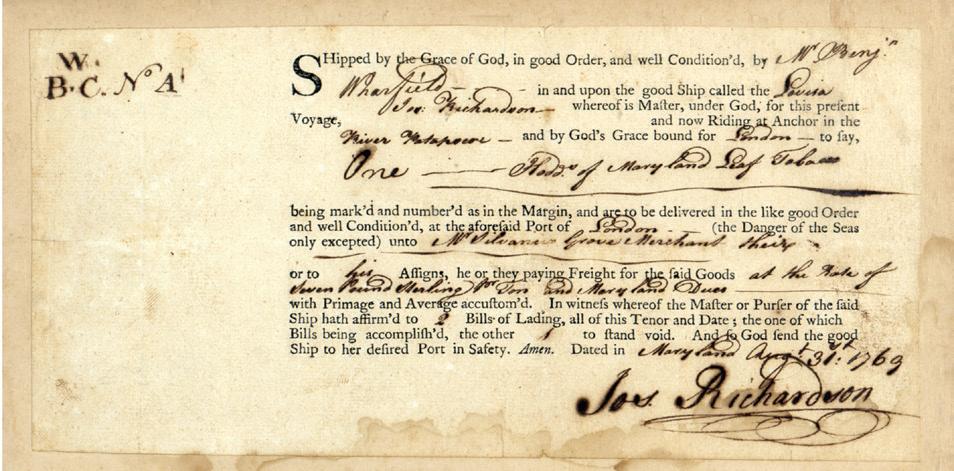 W.
B.C. No A1
SHipped by the Grace of God, in good Order, and well Condition'd, by Mr Benjn
Wharfield - in and upon the good Ship called the Lovisa
Jos: Richardson whereof is Master, under God, for this present
Voyage, and now Riding at Anchor in the
River Patapscoe - and by God's Grace bound for London - to say,
One - Hodd of Maryland Leaf Tobacco
being mark'd and number'd as in the Margin, and are to be delivered in the like good Order
and well Condition'd, at the aforesaid Port of London - (the Danger of the Seas
only excepted) unto Mr Silvanus Grove Merchant
or to his Assigns, he or they paying Freight for the said Goods at the Rate of
Seven Pound Sterling Pr Ton and Maryland Dues
with Primage and Average accustom'd. In witness whereof the Master or Purser of the said
Ship hath affirm'd to 2 Bills of Lading, all of this Tenor and Date; the one of which
Bills being accomplish'd, the other 1 to stand void. And so God send the good
Ship to her desired Port in Safety. Amen. Dated in Maryland Augt 31st 1769
Jos. Richardson